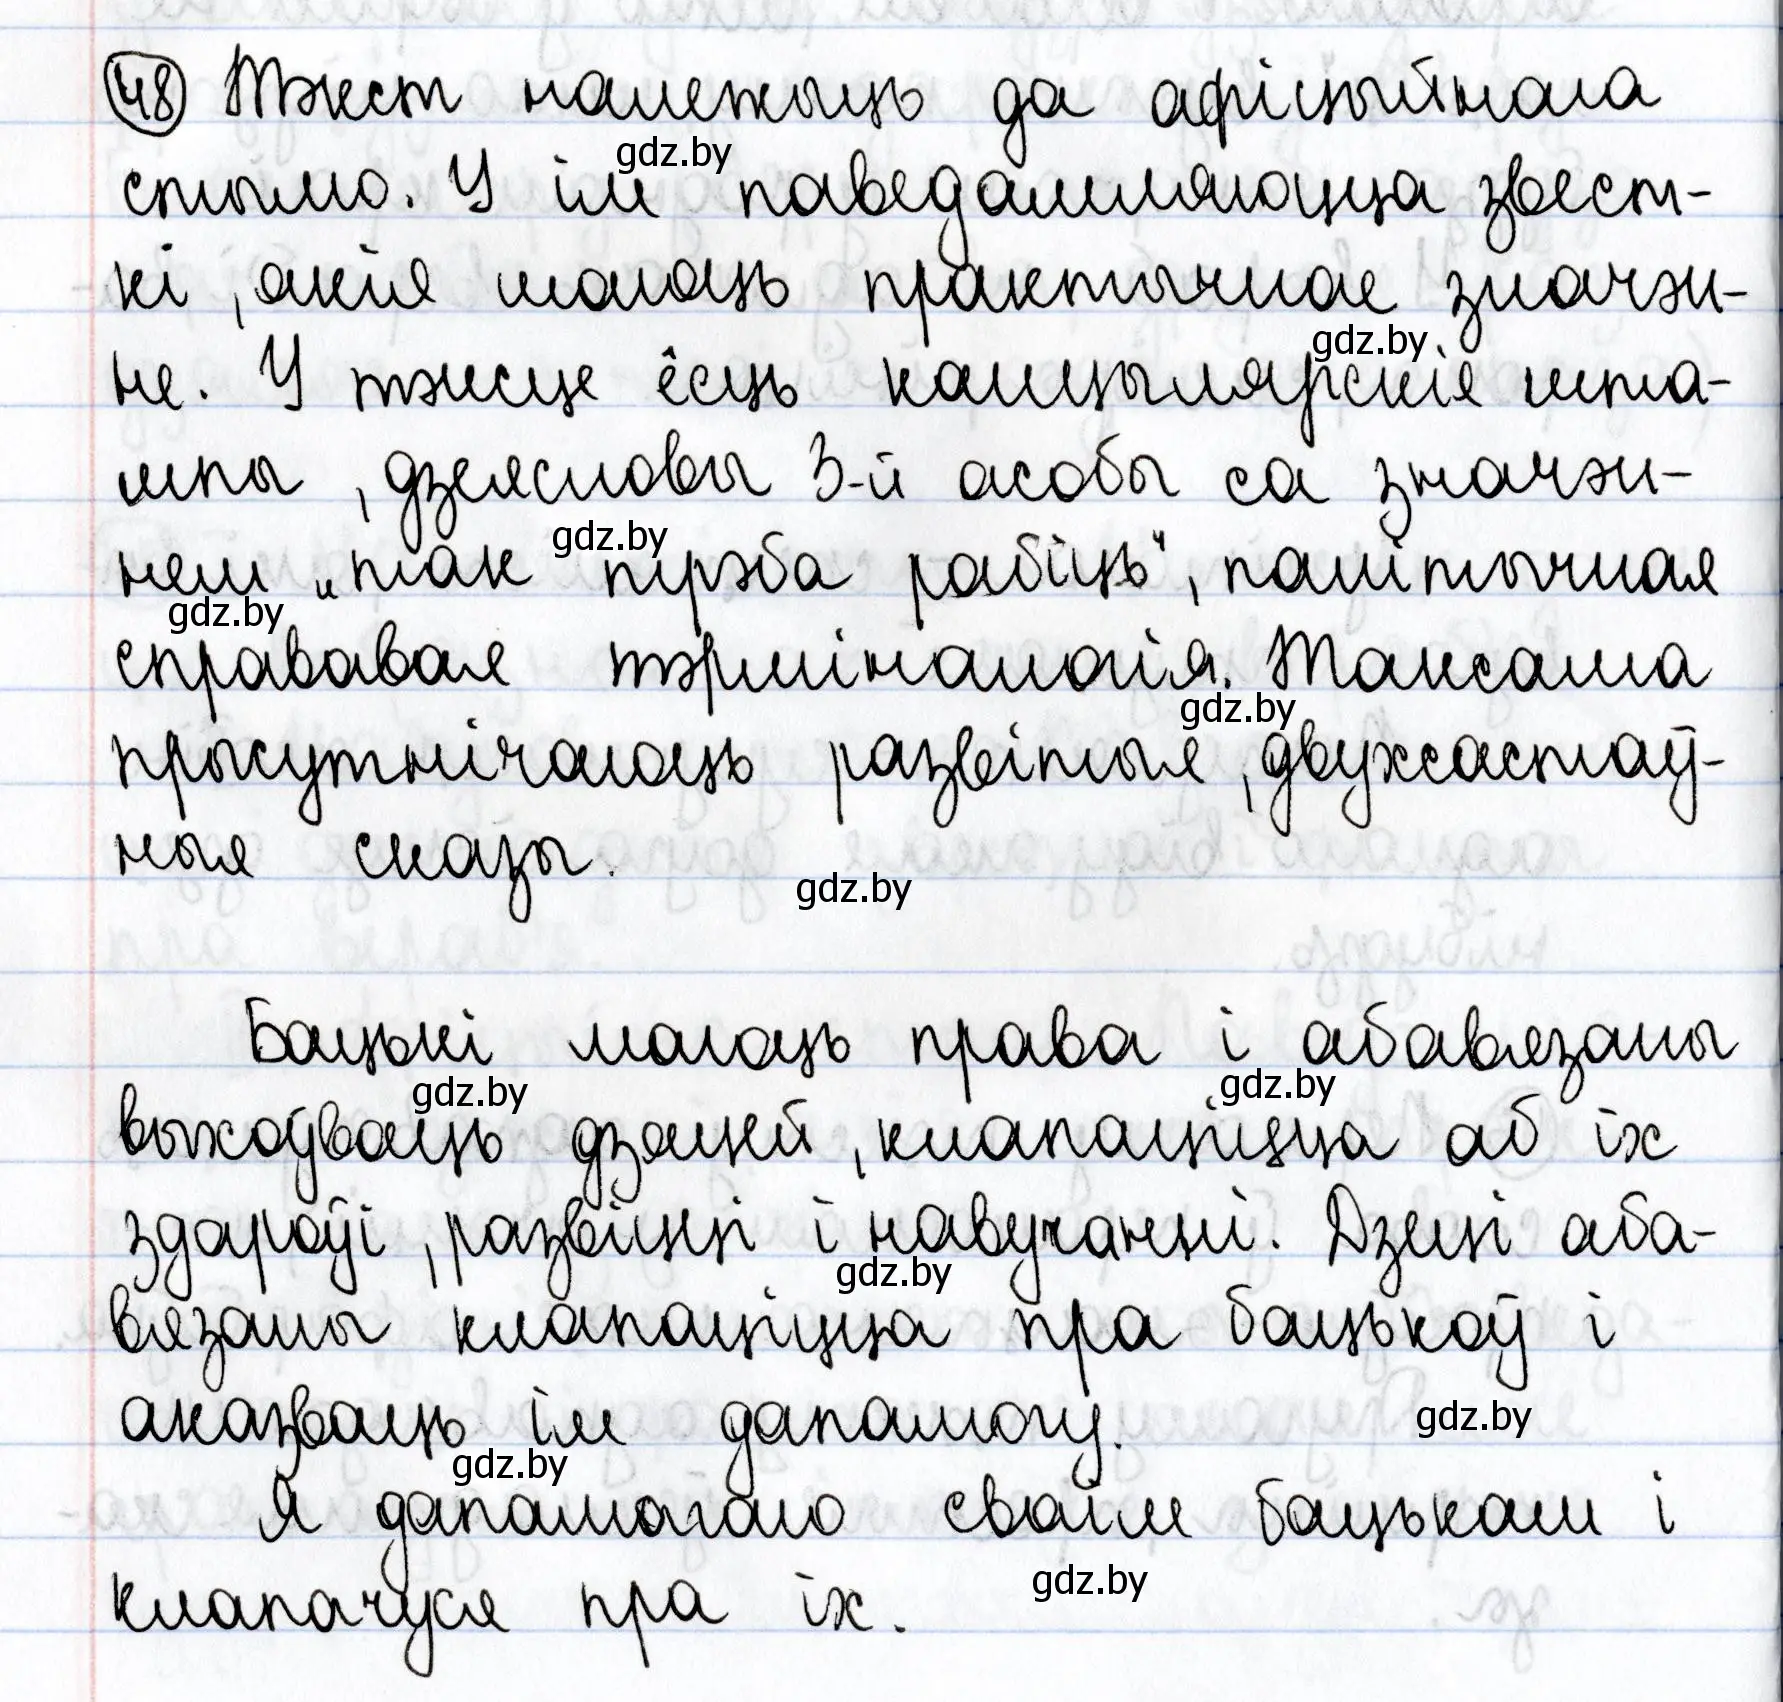 48 Тэкст належыць да афіцыйнага
gdz.by
стылю. У ім паведамляюцца звест-
кі, якія маюць практычнае значэн-
gdz.by
не. У тэксце ёсць канцылярскія шта-
мпы, дзеясловы 3-й асобы са значэн-
gdz.by
нем „так трэба рабіць“, палітычная
gdz.by
справавая тэрміналогія. Таксама
gdz.by
прысутнічаюць развітыя, двухсастаў-
ныя сказы.
gdz.by
Бацькі маюць права і абавязаны
gdz.by gdz.by
выхоўваць дзяцей, клапаціцца аб іх
здароўі, развіцці і навучанні. Дзеці аба-
gdz.by
вязаны клапаціцца пра бацькоў і
аказваць ім дапамогу.
gdz.by
gdz.by
Я дапамагаю сваім бацькам і
gdz.by
клапачуся пра іх.